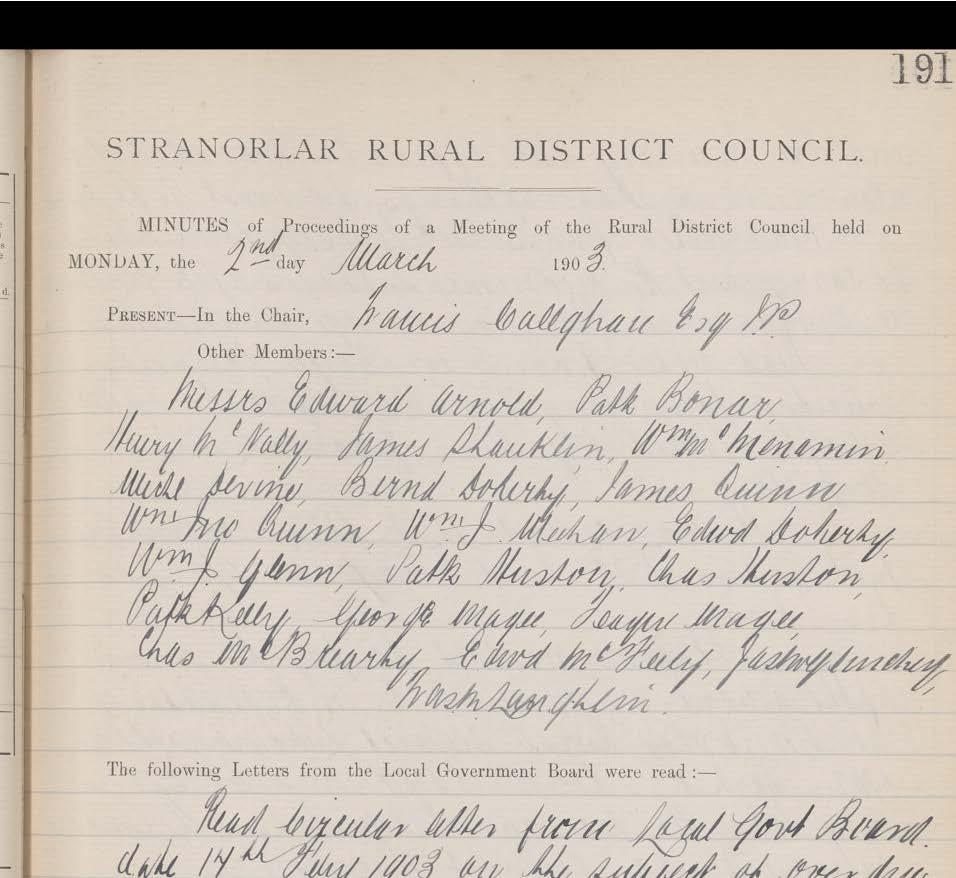 191
STRANORLAR RURAL DISTRICT COUNCIL.
MINUTES of Proceedings of a Meeting of the Rural District Council held on
MONDAY, the 2nd day March 1903.
PRESENT—In the Chair, Francis Callghan Esq JP
Other Members:—
Messrs Edward Arnold, Patk Bonar,
Henry McNally, James Shanklin, Wm McMenamin,
Michl Devine, Bernd Doherty, James Quinn
Wm Jno Quinn, Wm J. Meehan, Edwd Doherty,
Wm J Glenn, Patk Huston, Chas Huston,
Patk Kelly, George Magee, Magee
Chas McBrearty, Edwd McFeely,
The following Letters from the Local Government Board were read:—
Read Circular letter from Local Govt Board.
date 14th Feby 1903 on the subject of